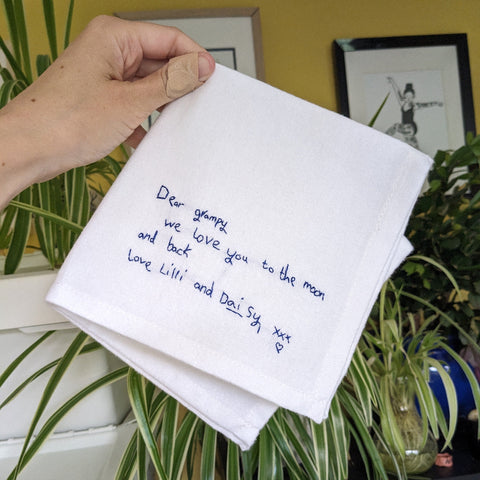 Dear grampy
we love you to the moon
and back
love Lilli and Daisy xxx
♡